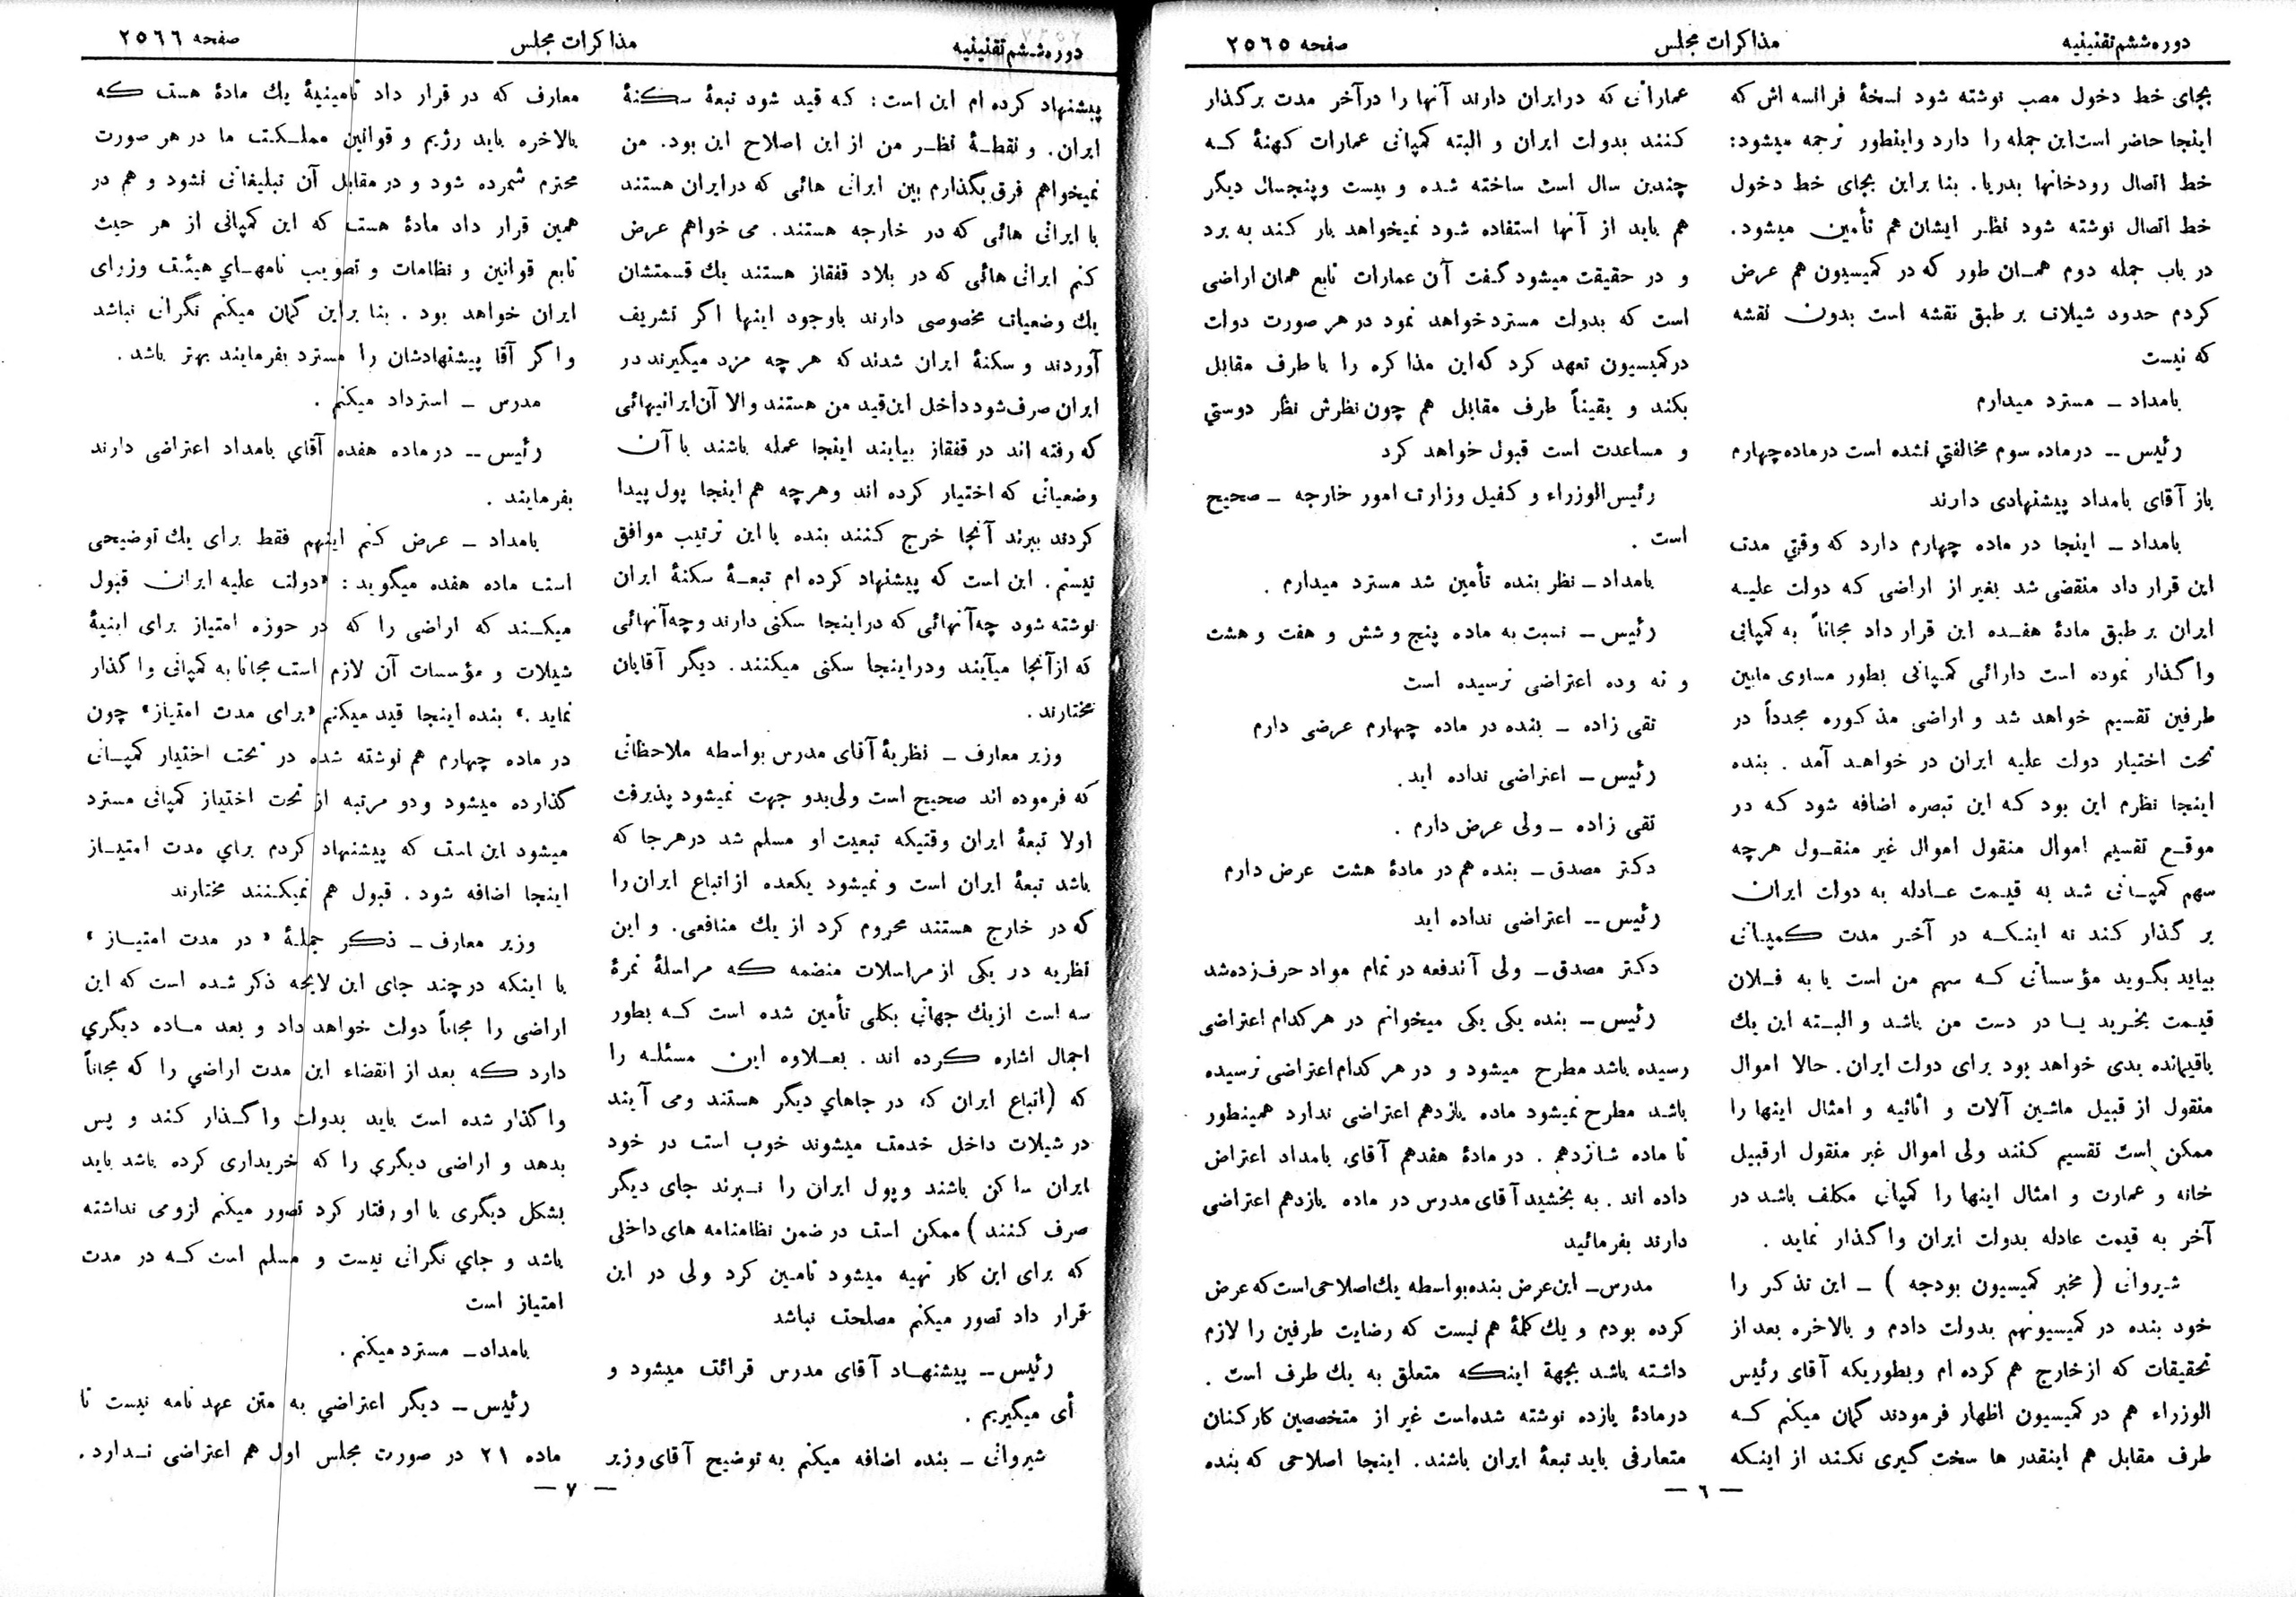 دوره ششم تقنینیه
مذاکرات مجلس
صفحه ۲۵۶۵
بجای خط دخول مصب نوشته شود نسخهٔ فرانسه اش که
اینجا حاضر است این جمله را دارد و اینطور ترجمه میشود:
خط اتصال رودخانها بدریا. بنا براین بجای خط دخول
خط اتصال نوشته شود نظر ایشان هم تأمین میشود.
در باب جمله دوم همان طور که در کمیسیون هم عرض
کردم حدود شیلات بر طبق نقشه است بدون نقشه
که نیست
یامداد ـ مسترد میدارم
رئیس -- در ماده سوم مخالفتي نشده است در ماده چهارم
باز آقای یامداد پیشنهادی دارند
یامداد ـ اینجا در ماده چهارم دارد که وقتي مدت
این قرار داد منقضی شد بغیر از اراضی که دولت علیه
ایران بر طبق مادهٔ هفده این قرار داد مجاناً به کمپانی
واگذار نموده است دارائی کمپانی بطور مساوی مابین
طرفین تقسیم خواهد شد و اراضی مذکوره مجدداً در
تحت اختیار دولت علیه ایران در خواهد آمد . بنده
اینجا نظرم این بود که این تبصره اضافه شود که در
موقع تقسیم اموال منقول اموال غیر منقول هرچه
سهم کمپانی شد به قیمت عادله به دولت ایران
بر گذار کند نه اینکه در آخر مدت کمپانی
بیاید بگوید مؤسساتی که سهم من است یا به فلان
قیمت بخرید یا در دست من باشد و البته این یك
باقیمانده بدی خواهد بود برای دولت ایران. حالا اموال
منقول از قبیل ماشین آلات و اثاثیه و امثال اینها را
ممکن است تقسیم کنند ولی اموال غیر منقول ازقبیل
خانه و عمارت و امثال اینها را کمپانی مکلف باشد در
آخر به قیمت عادله بدولت ایران واگذار نماید .
شیروانی ( مخبر کمیسیون بودجه ) ـ این تذکر را
خود بنده در کمیسیونهم بدولت دادم و بالاخره بعد از
تحقیقات که از خارج هم کرده ام وبطوریکه آقای رئیس
الوزراء هم در کمیسیون اظهار فرمودند گمان میکنم که
طرف مقابل هم اینقدر ها سخت گیری نکند از اینکه
عماراتی که در ایران دارند آنها را در آخر مدت برگذار
کنند بدولت ایران و البته کمپانی عمارات کهنهٔ که
چندین سال است ساخته شده و بیست و پنجسال دیگر
هم باید از آنها استفاده شود نمیخواهد بار کند به برد
و در حقیقت میشود گفت آن عمارات تابع همان اراضی
است که بدولت مسترد خواهد نمود در هر صورت دولت
در کمیسیون تعهد کرد که این مذاکره را با طرف مقابل
بکند و یقیناً طرف مقابل هم چون نظرش نظر دوستي
و مساعدت است قبول خواهد کرد
رئیس الوزراء و کفیل وزارت امور خارجه ـ صحیح
است .
یامداد ـ نظر بنده تأمین شد مسترد میدارم .
رئیس ـ نسبت به ماده پنج و شش و هفت و هشت
و نه وده اعتراضی نرسیده است
تقی زاده ـ بنده در ماده چهارم عرضی دارم
رئیس ـ اعتراضی نداده اید.
تقی زاده ـ ولی عرض دارم .
دکتر مصدق ـ بنده هم در مادهٔ هشت عرض دارم
رئیس -- اعتراضی نداده اید
دکتر مصدق ـ ولی آندفعه در تمام مواد حرف زده شد
رئیس ـ بنده یکی یکی میخوانم در هر کدام اعتراضی
رسیده باشد مطرح میشود و در هر کدام اعتراضی نرسیده
باشد مطرح نمیشود ماده یازدهم اعتراضی ندارد همینطور
تا ماده شازدهم . در مادهٔ هفدهم آقای یامداد اعتراض
داده اند . به بخشید آقای مدرس در ماده یازدهم اعتراضی
دارند بفرمائید
مدرس ـ این عرض بنده بواسطه یك اصلاحی است که عرض
کرده بودم و یك کلمهٔ هم نیست که رضایت طرفین را لازم
داشته باشد بجهة اینکه متعلق به یك طرف است .
در مادهٔ یازده نوشته شده است غیر از متخصصین کارکنان
متعارفی باید تبعهٔ ایران باشند. اینجا اصلاحی که بنده
— ٦ —
دوره ششم تقنینیه
مذاکرات مجلس
صفحه ۲۵۶۶
پیشنهاد کرده ام این است: که قید شود تبعهٔ سکنهٔ
ایران. و نقطهٔ نظر من از این اصلاح این بود. من
نمیخواهم فرق بگذارم بین ایرانی هائی که در ایران هستند
با ایرانی هائی که در خارجه هستند. می خواهم عرض
کنم ایرانی هائی که در بلاد قفقاز هستند یك قسمتشان
یك وضعیات مخصوصی دارند باوجود اینها اگر تشریف
آوردند و سکنهٔ ایران شدند که هر چه مزد میگیرند در
ایران صرف شود داخل این قید من هستند والا آن ایرانیهائی
که رفته اند در قفقاز بیایند اینجا عمله باشند با آن
وضعیاتی که اختیار کرده اند وهرچه هم اینجا پول پیدا
کردند ببرند آنجا خرج کنند بنده با این ترتیب موافق
نیستم . این است که پیشنهاد کرده ام تبعهٔ سکنهٔ ایران
نوشته شود چه آنهائی که در اینجا سکنی دارند و چه آنهائی
که از آنجا میآیند ودر اینجا سکنی میکنند. دیگر آقایان
مختارند.
وزیر معارف ـ نظریهٔ آقای مدرس بواسطه ملاحظاتی
که فرموده اند صحیح است ولی بدو جهت نمیشود پذیرفت
اولا تبعهٔ ایران وقتیکه تبعیت او مسلم شد در هر جا که
باشد تبعهٔ ایران است و نمیشود یکعده از اتباع ایران را
که در خارج هستند محروم کرد از یك منافعی. و این
نظریه در یکی از مراسلات منضمه که مراسلهٔ نمرهٔ
سه است از یك جهاتی بکلی تأمین شده است که بطور
اجمال اشاره کرده اند . بعلاوه این مسئله را
که (اتباع ایران که در جاهاي دیگر هستند ومی آیند
در شیلات داخل خدمت میشوند خوب است در خود
ایران ساکن باشند و پول ایران را نبرند جای دیگر
صرف کنند ) ممکن است در ضمن نظامنامه های داخلی
که برای این کار تهیه میشود تامین کرد ولی در این
قرار داد تصور میکنم مصلحت نباشد
رئیس -- پیشنهاد آقای مدرس قرائت میشود و
أی میگیریم .
شیروانی ـ بنده اضافه میکنم به توضیح آقای وزیر
معارف که در قرار داد تامینیهٔ یك مادهٔ هست که
بالاخره باید رژیم و قوانین مملکت ما در هر صورت
محترم شمرده شود و در مقابل آن تبلیغاتی نشود و هم در
همین قرار داد مادهٔ هست که این کمپانی از هر حیث
تابع قوانین و نظامات و تصویب نامهاي هیئت وزرای
ایران خواهد بود . بنا براین گمان میکنم نگرانی نباشد
واگر آقا پیشنهادشان را مسترد بفرمایند بهتر باشد .
مدرس ـ استرداد میکنم .
رئیس -- در ماده هفده آقاي یامداد اعتراضی دارند
بفرمایند .
یامداد ـ عرض کنم اینهم فقط برای یك توضیحی
است ماده هفده میگوید : «دولت علیه ایران قبول
میکند که اراضی را که در حوزه امتیاز برای ابنیهٔ
شیلات و مؤسسات آن لازم است مجانا به کمپانی واگذار
نماید .» بنده اینجا قید میکنم «برای مدت امتیاز» چون
در ماده چهارم هم نوشته شده در تحت اختیار کمپانی
گذارده میشود ودو مرتبه از تحت اختیاز کمپانی مسترد
میشود این است که پیشنهاد کردم براي مدت امتیاز
اینجا اضافه شود . قبول هم نمیکنند مختارند
وزیر معارف ـ ذکر جملهٔ « در مدت امتیاز »
با اینکه در چند جای این لایحه ذکر شده است که این
اراضی را مجاناً دولت خواهد داد و بعد ماده دیگري
دارد که بعد از انقضاء این مدت اراضي را که مجاناً
واگذار شده است باید بدولت واگذار کند و پس
بدهد و اراضی دیگري را که خریداری کرده باشد باید
بشکل دیگری با او رفتار کرد تصور میکنم لزومی نداشته
باشد و جاي نگرانی نیست و مسلم است که در مدت
امتیاز است
یامداد ـ مسترد میکنم .
رئیس ـ دیگر اعتراضي به متن عهد نامه نیست تا
ماده ۲۱ در صورت مجلس اول هم اعتراضی ندارد .
— ۷ —